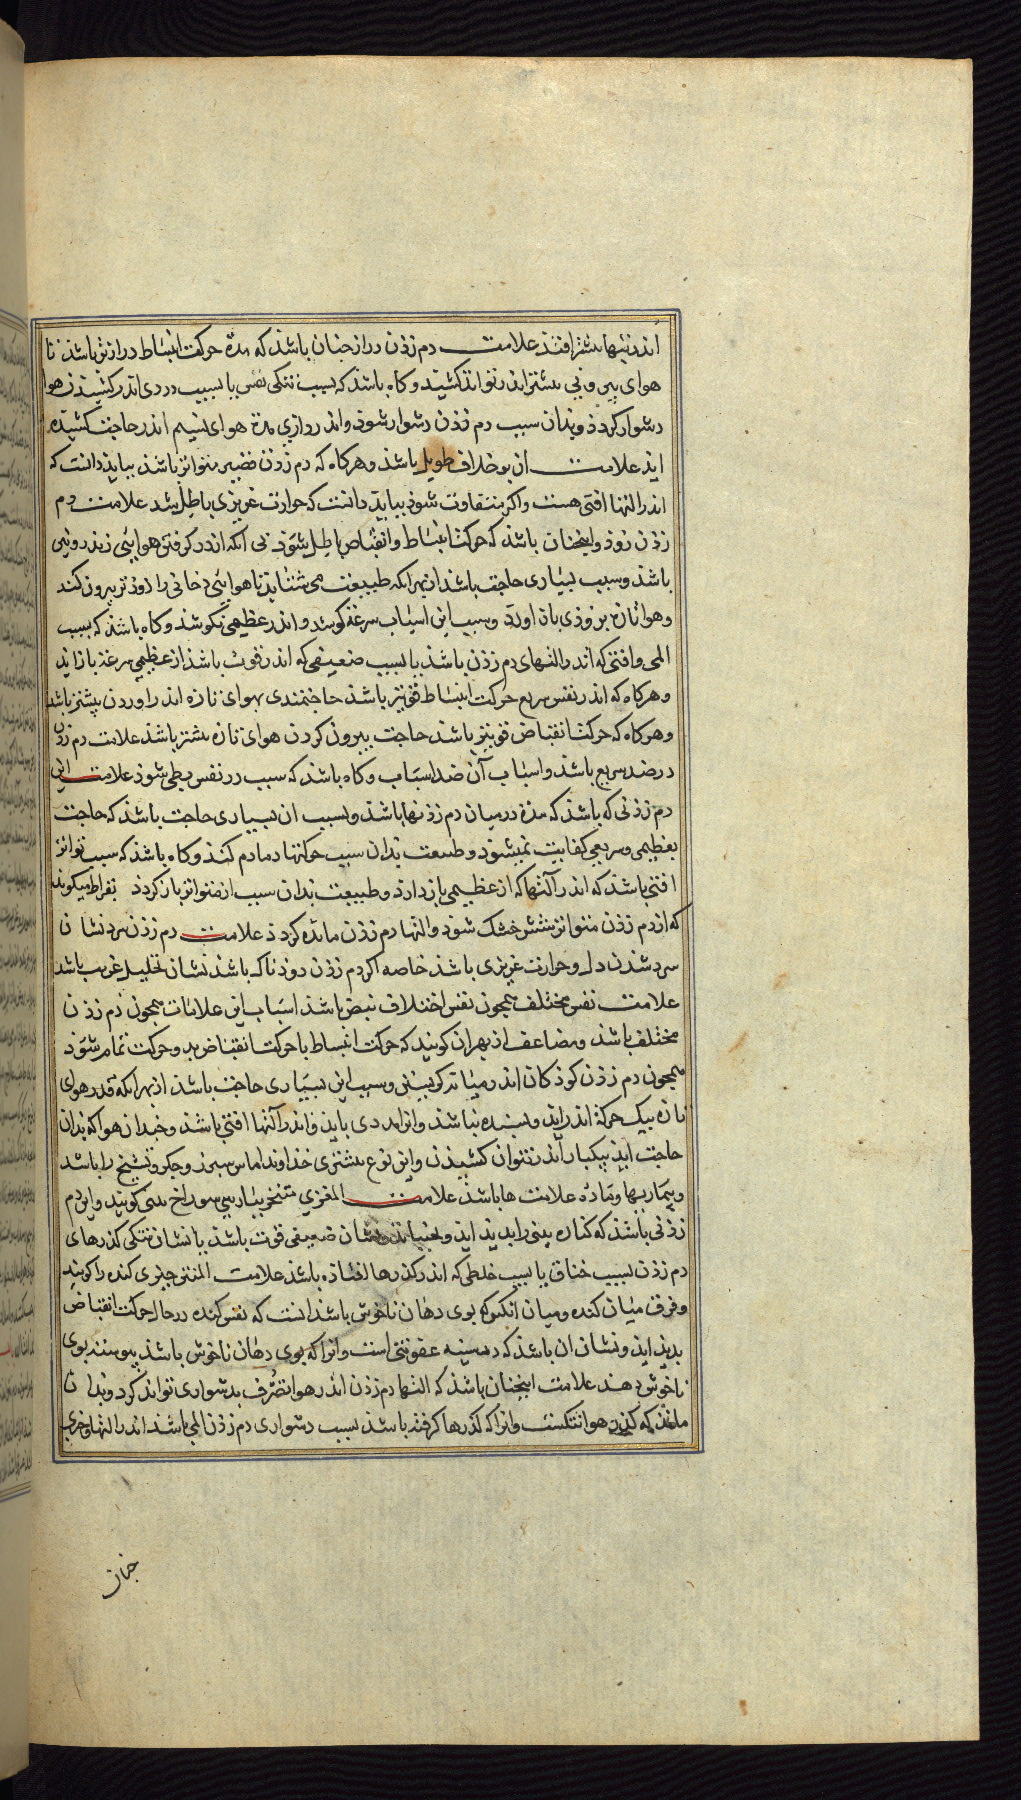 اندر تبها بیشتر افتد علامت دم زدن دراز جنان باشد که مدّة حرکت انبساط درازتر باشد تا
هوای بیرونی بیشتر اندر تواند کشید و کاه باشد که بسبب تنکی نفس یا بسبب دردی اندر کشیدن هوا
دشوار کردد و بدان سبب دم زدن دشوار شود و اندر درازی مدة هوای نسیم اندر حاجت کشیده
اید علامت ان بر خلاف طویل باشد و هرکاه که دم زدن قصیر متواتر باشد بباید دانست که
اندر التها افتی هست و اکر متفاوت شود بباید دانست که حرارت غریزی باطل شد علامت دم
زدن زود و اینجنان باشد که حرکت انبساط و انقباض باطل شود بی انکه اندر کرفتن هوا یی زیرونی
باشد و سبب بسیاری حاجت باشد از بهر انکه طبیعت می شتابد تا هوایی دخانی را زودتر بیرون کند
و هوا تازه بزودی باز اورد و سبب این اسباب سرعة کوشد و اندر عظیمی نکوشد و کاه باشد که بسبب
المی و افتی که اندر التهای دم زدن باشد یا بسبب ضعیفی که اندر قوت باشد از عظیمی بسرعة باز اید
و هرکاه که اندر نفس سریع حرکت انبساط قویتر باشد حاجتمندی بهوای تازه اندر اوردن بیشتر باشد
و هرکاه که حرکت انقباض قویتر باشد حاجت بیرون کردن هوای تازه بیشتر باشد علامت دم زدن
در ضد سریع باشد و اسباب آن ضد اسباب و کاه باشد که سبب درد نفس بطی شود علامت این
دم زدنی که باشد که مدة در میان دم زدنها باشد و بسبب ان بسیاری حاجت باشد که حاجت
بعظیمی و سریعی کفایت نمیشود و طبیعت بدان سبب حرکتها دمادم کند و کاه باشد که سبب تواتر
افتی باشد که اندر آلتها که از عظیمی باز دارد و طبیعت بدان سبب از متواتر باز کردد بقراط میکوید
که از دم زدن متواتر شش خشک شود و التها دم زدن مانده کردد علامت دم زدن سرد نشان
سرد شدن دل و حرارت غریزی باشد خاصه اکر دم زدن دود ناک باشد نشان تحلیل غریب باشد
علامت نفس مختلف همجون نفس اختلاف نبض باشد اسباب این علامات همجون دم زدن
مختلف باشد و مضاعف از بهر ان کویند که حرکت انبساط با حرکت انقباض بدو حرکت تمام شود
همجون دم زدن کودکان اندر میانه کریستن و سبب این بسیاری حاجت باشد از بهر انکه قدر هوای
تازه بیک حرکة اندر اید و بسنده نباشد و انرا مددی باید و اندر آلتها افتی باشد و جندان هوا که بدان
حاجت اید بیکبار اندر نتوان کشیدن و این نوع بیشتری خداوند اماس سبرز و جکر و تشنج را باشد
و بیماریها و ماده علامت ها باشد علامت المنخری منخر بتازی سوراخ بینی کویند و این دم
زدنی باشد که کناره بینی را بدید اید و بجنباند و نشان ضعیفی قوت باشد یا نشان تنکی کذرهای
دم زدن بسبب خناق یا بسبب خلطی که اندر کذرها افتاده باشد علامت المنتن جیزی کنده را کویند
و فرق میان کنده و میان انکس که بوی دهان ناخوش باشد انست که نفس کنده در حال حرکت انقباض
بدید اید و نشان ان باشد که در سینه عفونتی است و انرا که بوی دهان ناخوش باشد پیوسته بوی
ناخوش دهد علامت اینجنان باشد که التها دم زدن اندر هوا تصرف بدشواری تواند کرد و بدان
ماند که کذر هوا تنکست و انرا که کذرها کرفته باشد بسبب دشواری دم زدن المی باشد اندر التها و خری
جنان